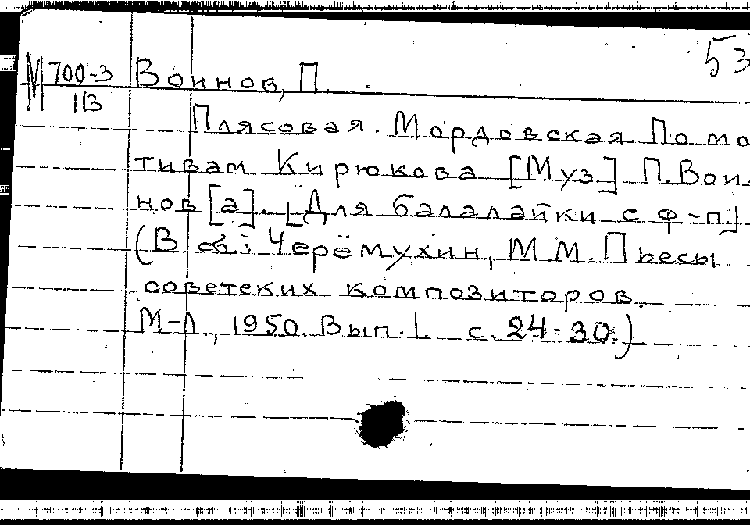 53
М 700-3 Воинов, П.
1В
Плясовая. Мордовская. По мо
тивам Кирюкова [Муз] П. Вои-
нов[а]. [Для балалайки с ф-п.]
(В сб: Черёмухин, М.М. Пьесы
советских композиторов.
М-Л, 1950. Вып. 1 с. 24-30.)